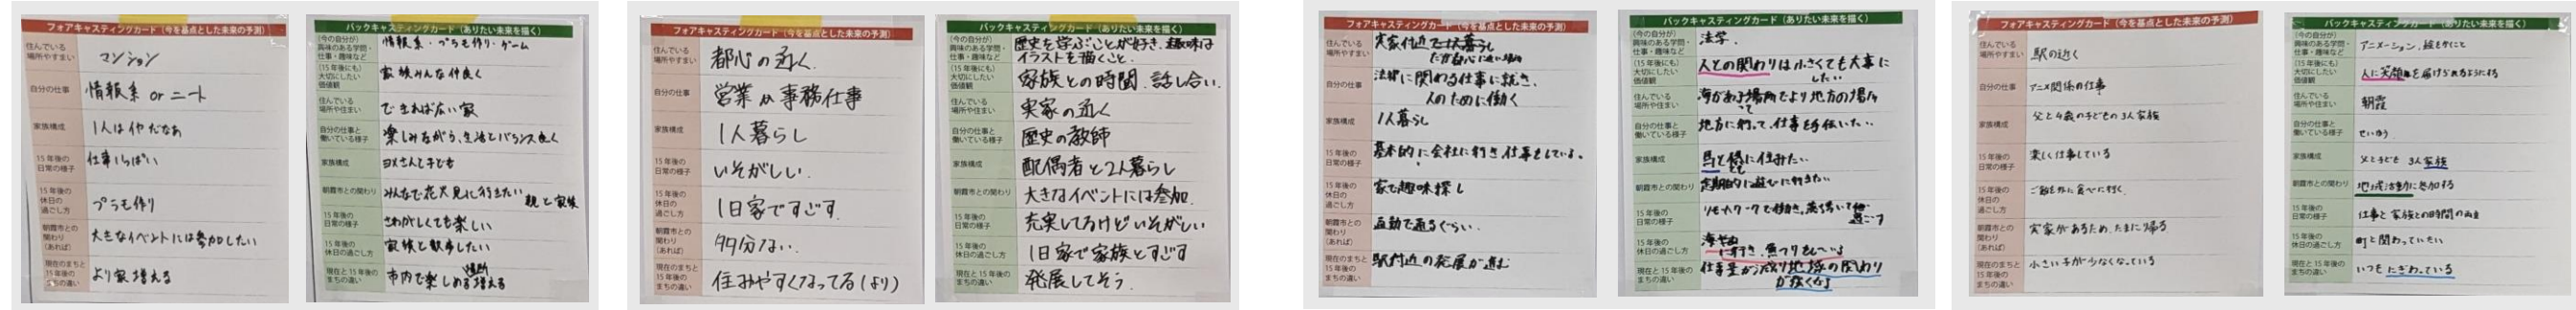 フォアキャスティングカード（今を基点とした未来の予測）
住んでいる場所やすまい
マンション
自分の仕事
情報系 or ニート
家族構成
1人はイヤだなぁ
15年後の日常の様子
仕事いっぱい
15年後の休日の過ごし方
プラモ作り
朝霞市との関わり（あれば）
大きなイベントには参加したい
現在のまちと15年後のまちの違い
より家増える
バックキャスティングカード（ありたい未来を描く）
（今の自分が）興味のある学問・仕事・趣味など
情報系・プラモ作り・ゲーム
（15年後にも）大切にしたい価値観
家族みんな仲良く
住んでいる場所や住まい
できれば広い家
自分の仕事と働いている様子
楽しみながら、生活とバランス良く
家族構成
ヨメさんと子ども
朝霞市との関わり
みんなで花火見に行きたい 親と家族
15年後の日常の様子
さわがしくても楽しい
15年後の休日の過ごし方
家族と散歩したい
現在と15年後のまちの違い
市内で楽しめる場所増える
フォアキャスティングカード（今を基点とした未来の予測）
住んでいる場所やすまい
都心の近く.
自分の仕事
営業 か 事務仕事
家族構成
1人暮らし
15年後の日常の様子
いそがしい.
15年後の休日の過ごし方
1日家ですごす.
朝霞市との関わり（あれば）
多分ない.
現在のまちと15年後のまちの違い
住みやすくなってる(より)
バックキャスティングカード（ありたい未来を描く）
（今の自分が）興味のある学問・仕事・趣味など
歴史を学ぶことが好き.趣味は
イラストを描くこと.
（15年後にも）大切にしたい価値観
家族との時間.話し合い.
住んでいる場所や住まい
実家の近く
自分の仕事と働いている様子
歴史の教師
家族構成
配偶者と2人暮らし
朝霞市との関わり
大きなイベントには参加.
15年後の日常の様子
充実してるけどいそがしい
15年後の休日の過ごし方
1日家で家族とすごす
現在と15年後のまちの違い
発展してそう.
フォアキャスティングカード（今を基点とした未来の予測）
住んでいる場所やすまい
実家付近で一人暮らし
自分の仕事
法律に関わる仕事に就き、
人のために働く
家族構成
1人暮らし
15年後の日常の様子
基本的に会社に行き仕事をしている。
15年後の休日の過ごし方
家で趣味探し
朝霞市との関わり（あれば）
通るぐらい.
現在のまちと15年後のまちの違い
駅付近の発展が進む
バックキャスティングカード（ありたい未来を描く）
（今の自分が）興味のある学問・仕事・趣味など
法学.
（15年後にも）大切にしたい価値観
人との関わりは小さくても大事に
したい
住んでいる場所や住まい
海がある場所でより地方の場所
自分の仕事と働いている様子
地方に行って、仕事を手伝いたい.
家族構成
朝霞市との関わり
定期的に遊びに行きたい
15年後の日常の様子
リモートワークで働き、
15年後の休日の過ごし方
に行き、魚つりをしている
現在と15年後のまちの違い
仕事量が減り地域の関わり
が強くなる
フォアキャスティングカード（今を基点とした未来の予測）
住んでいる場所やすまい
駅の近く
自分の仕事
アニメ関係の仕事
家族構成
父と4歳の子どもの3人家族
15年後の日常の様子
楽しく仕事している
15年後の休日の過ごし方
ご飯を外に食べに行く
朝霞市との関わり（あれば）
実家があるため、たまに帰る
現在のまちと15年後のまちの違い
小さい子が少なくなっている
バックキャスティングカード（ありたい未来を描く）
（今の自分が）興味のある学問・仕事・趣味など
アニメーション、絵をかくこと
（15年後にも）大切にしたい価値観
人に笑顔を届けられるようにする
住んでいる場所や住まい
朝霞
自分の仕事と働いている様子
せいゆう
家族構成
父と子ども 3人家族
朝霞市との関わり
地域活動に参加する
15年後の日常の様子
仕事と家族との時間の両立
15年後の休日の過ごし方
町と関わっていたい
現在と15年後のまちの違い
いつもにぎわっている